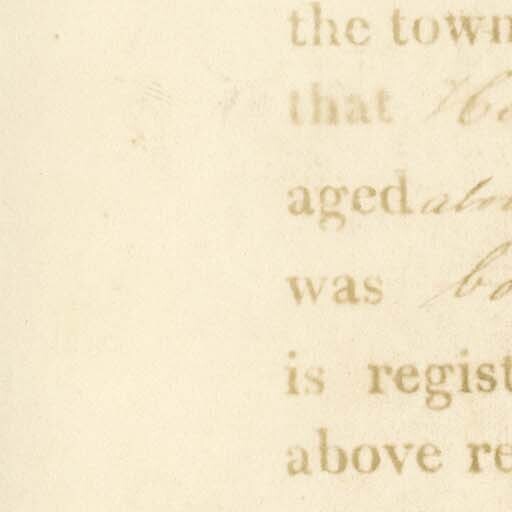 the town
that
aged
was
is regist
above re